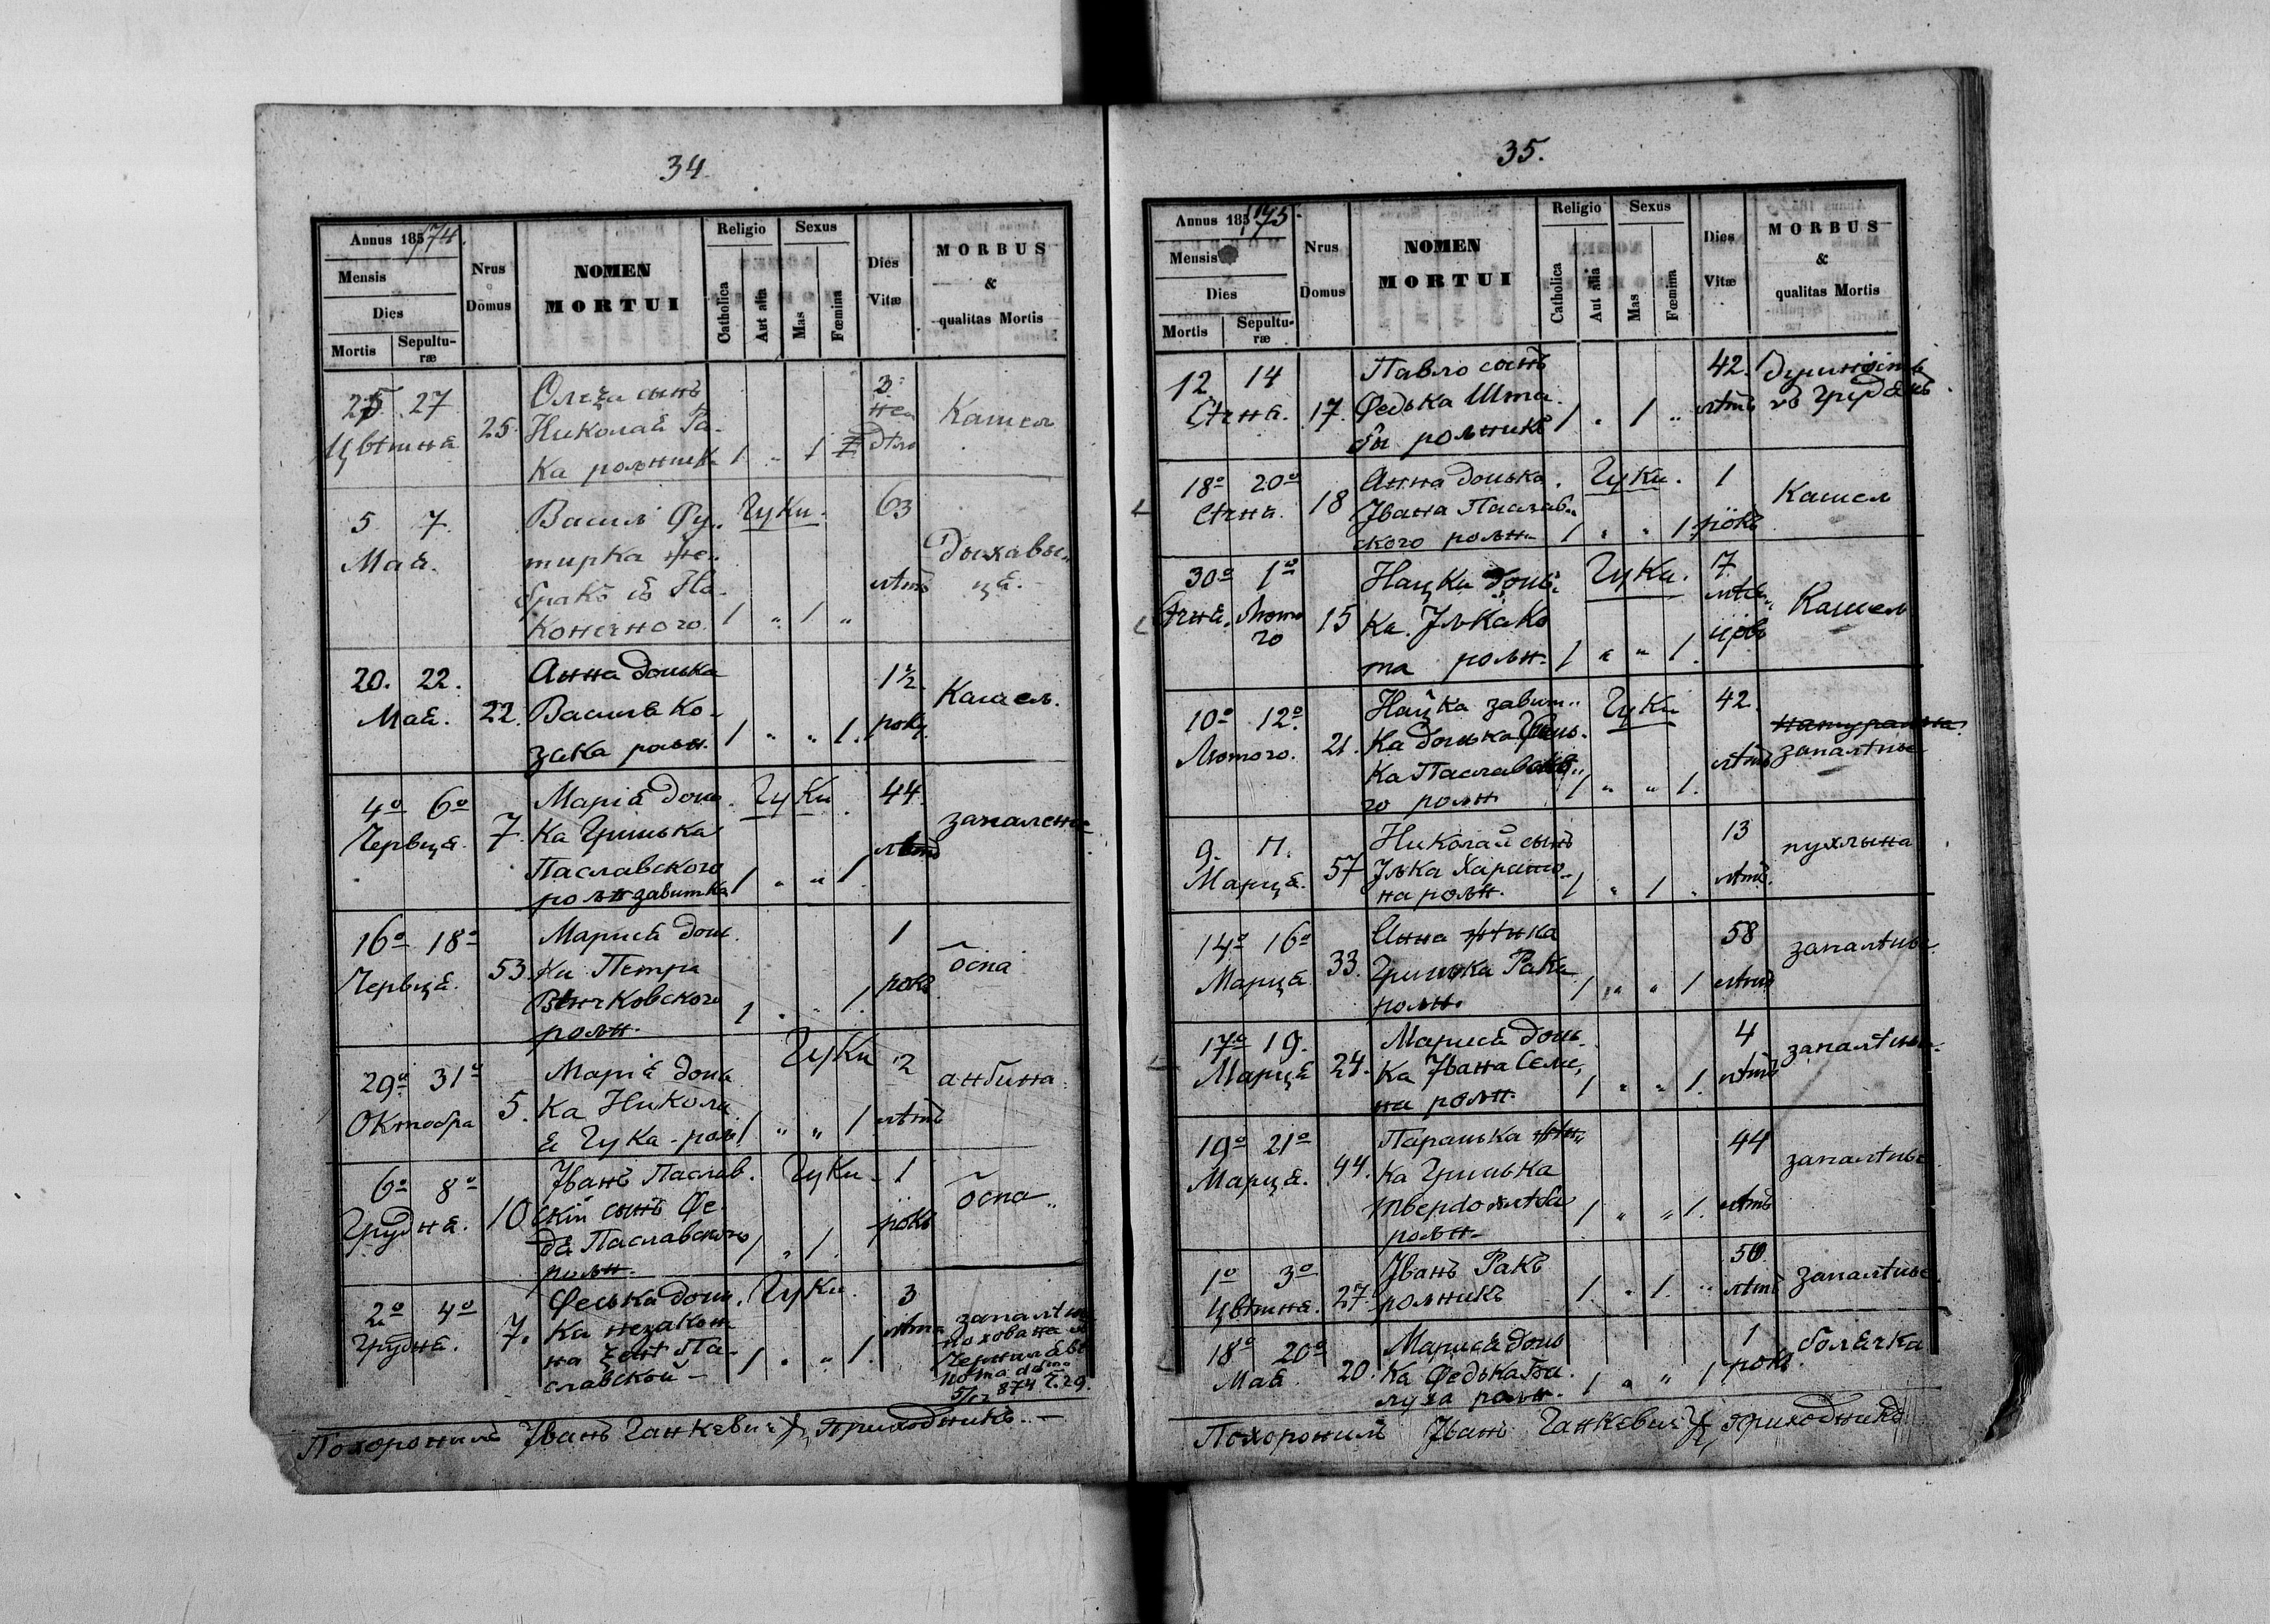 34.
Annus 185 / 74.
Mensis
Dies
Mortis
Sepulturæ
Nrus
Domus
NOMEN
MORTUI
Religio
Catholica
Aut alia
Sexus
Mas
Fœmina
Dies
Vitæ
MORBUS
&
qualitas Mortis
25. 27
Цвѣтня
25.
сынъ
Николая Ра-
ка рольник
1 „ 1
3
не
дѣл
Кашел
5 7.
Мая.
Васил Фу„
тирка же„
бракъ зъ На-
конечного.
Чуки.
1 „ 1 „
63
лѣтъ
Дыхавы„
ця.
20. 22.
Мая.
22.
Анна донька
Василя Ко-
зака рольн.
1 „ „ 1.
1½
року
Кашель.
4о 6о
Червця.
7.
Марія донь-
ка Гринька
Паславского
рольн завитка
Чуки
1 „ „ 1
44.
лѣтъ
запалене
16о 18о
Червця.
53.
Марися донь.
ка Петра
Вѣнчковского
рольн.
1 „ „ 1.
1
рокъ
ôспа
29о 31о
Октобра
5.
Марія донь
ка Никола
я Чука - рол
Чуки
1 „ „ 1
2
лѣтъ
анбина
6о 8о
Грудня.
10
Іванъ Паслав.
скій сынъ Фе
дя Паславского
рольн.
Чуки
1 „ 1.
1
рôкъ
ôспа„
2о 4о
Грудня.
7.
Феська донь.
ка незакон
на Паславской -
Чуки
1 „ „ 1.
3
лѣта
запалѣн
похована
5/12 874 Ч. 29.
Похоронилъ Іванъ Чанкевич приходникъ. -
35.
Annus 185 / 75.
Mensis
Dies
Mortis
Sepulturæ
Nrus
Domus
NOMEN
MORTUI
Religio
Catholica
Aut alia
Sexus
Mas
Fœmina
Dies
Vitæ
MORBUS
&
qualitas Mortis
12 14
Стчня.
17.
Павло сынъ
Федька Шта.
бы рольникъ
1 „ 1 „
42.
лѣтъ
Душнôсть
въ грудехъ
18о 20о
Стчня.
18
Анна донька.
Івана Паслав„
ского рольн
Чуки.
1 „ „ 1.
1
рôкъ
Кашел
30о 1о
Стчня. Лютого
15
Нацка донь-
ка. Ілька Ко
та рольн.
Чуки.
1 „ „ 1.
7.
Кашель
10о 12о
Лютого.
21.
Нацка завит„
ка донька
ка Паславско„
го рольн
Чуки
1 „ „ 1.
42.
лѣтъ
натуральна.
запалѣнье
9. 11.
Марця.
57
Николай сынъ
Ілька Харито-
на рольн.
1 „ 1 „
13
лѣтъ.
пухлына
14о 16о
Марця
33.
Анна жѣнка
Гринька Рака
рольн.
1 „ „ 1
58
лѣтъ
запалѣнье.
17о 19.
Марця
24.
Марися донь-
ка Івана Семе„
на рольн.
1 „ „ 1.
4
лѣтъ
запалѣнье.
19о 21о
Марця.
44.
Паранька жѣн„
ка Гринька
Твердохлѣба
рольн-
1 „ „ 1.
44
лѣтъ
запалѣнье
1о 3о
Цвѣтня.
27.
Іванъ Ракъ
рольникъ
1. „ 1. „
50
лѣтъ
запалѣнье.
18о 20о
Мая
20.
Марися донь
ка Федька Ба.
луха рольн.
1 „ „ 1
1
рокъ.
болячка
Похоронилъ Іванъ Чанкевич приходникъ